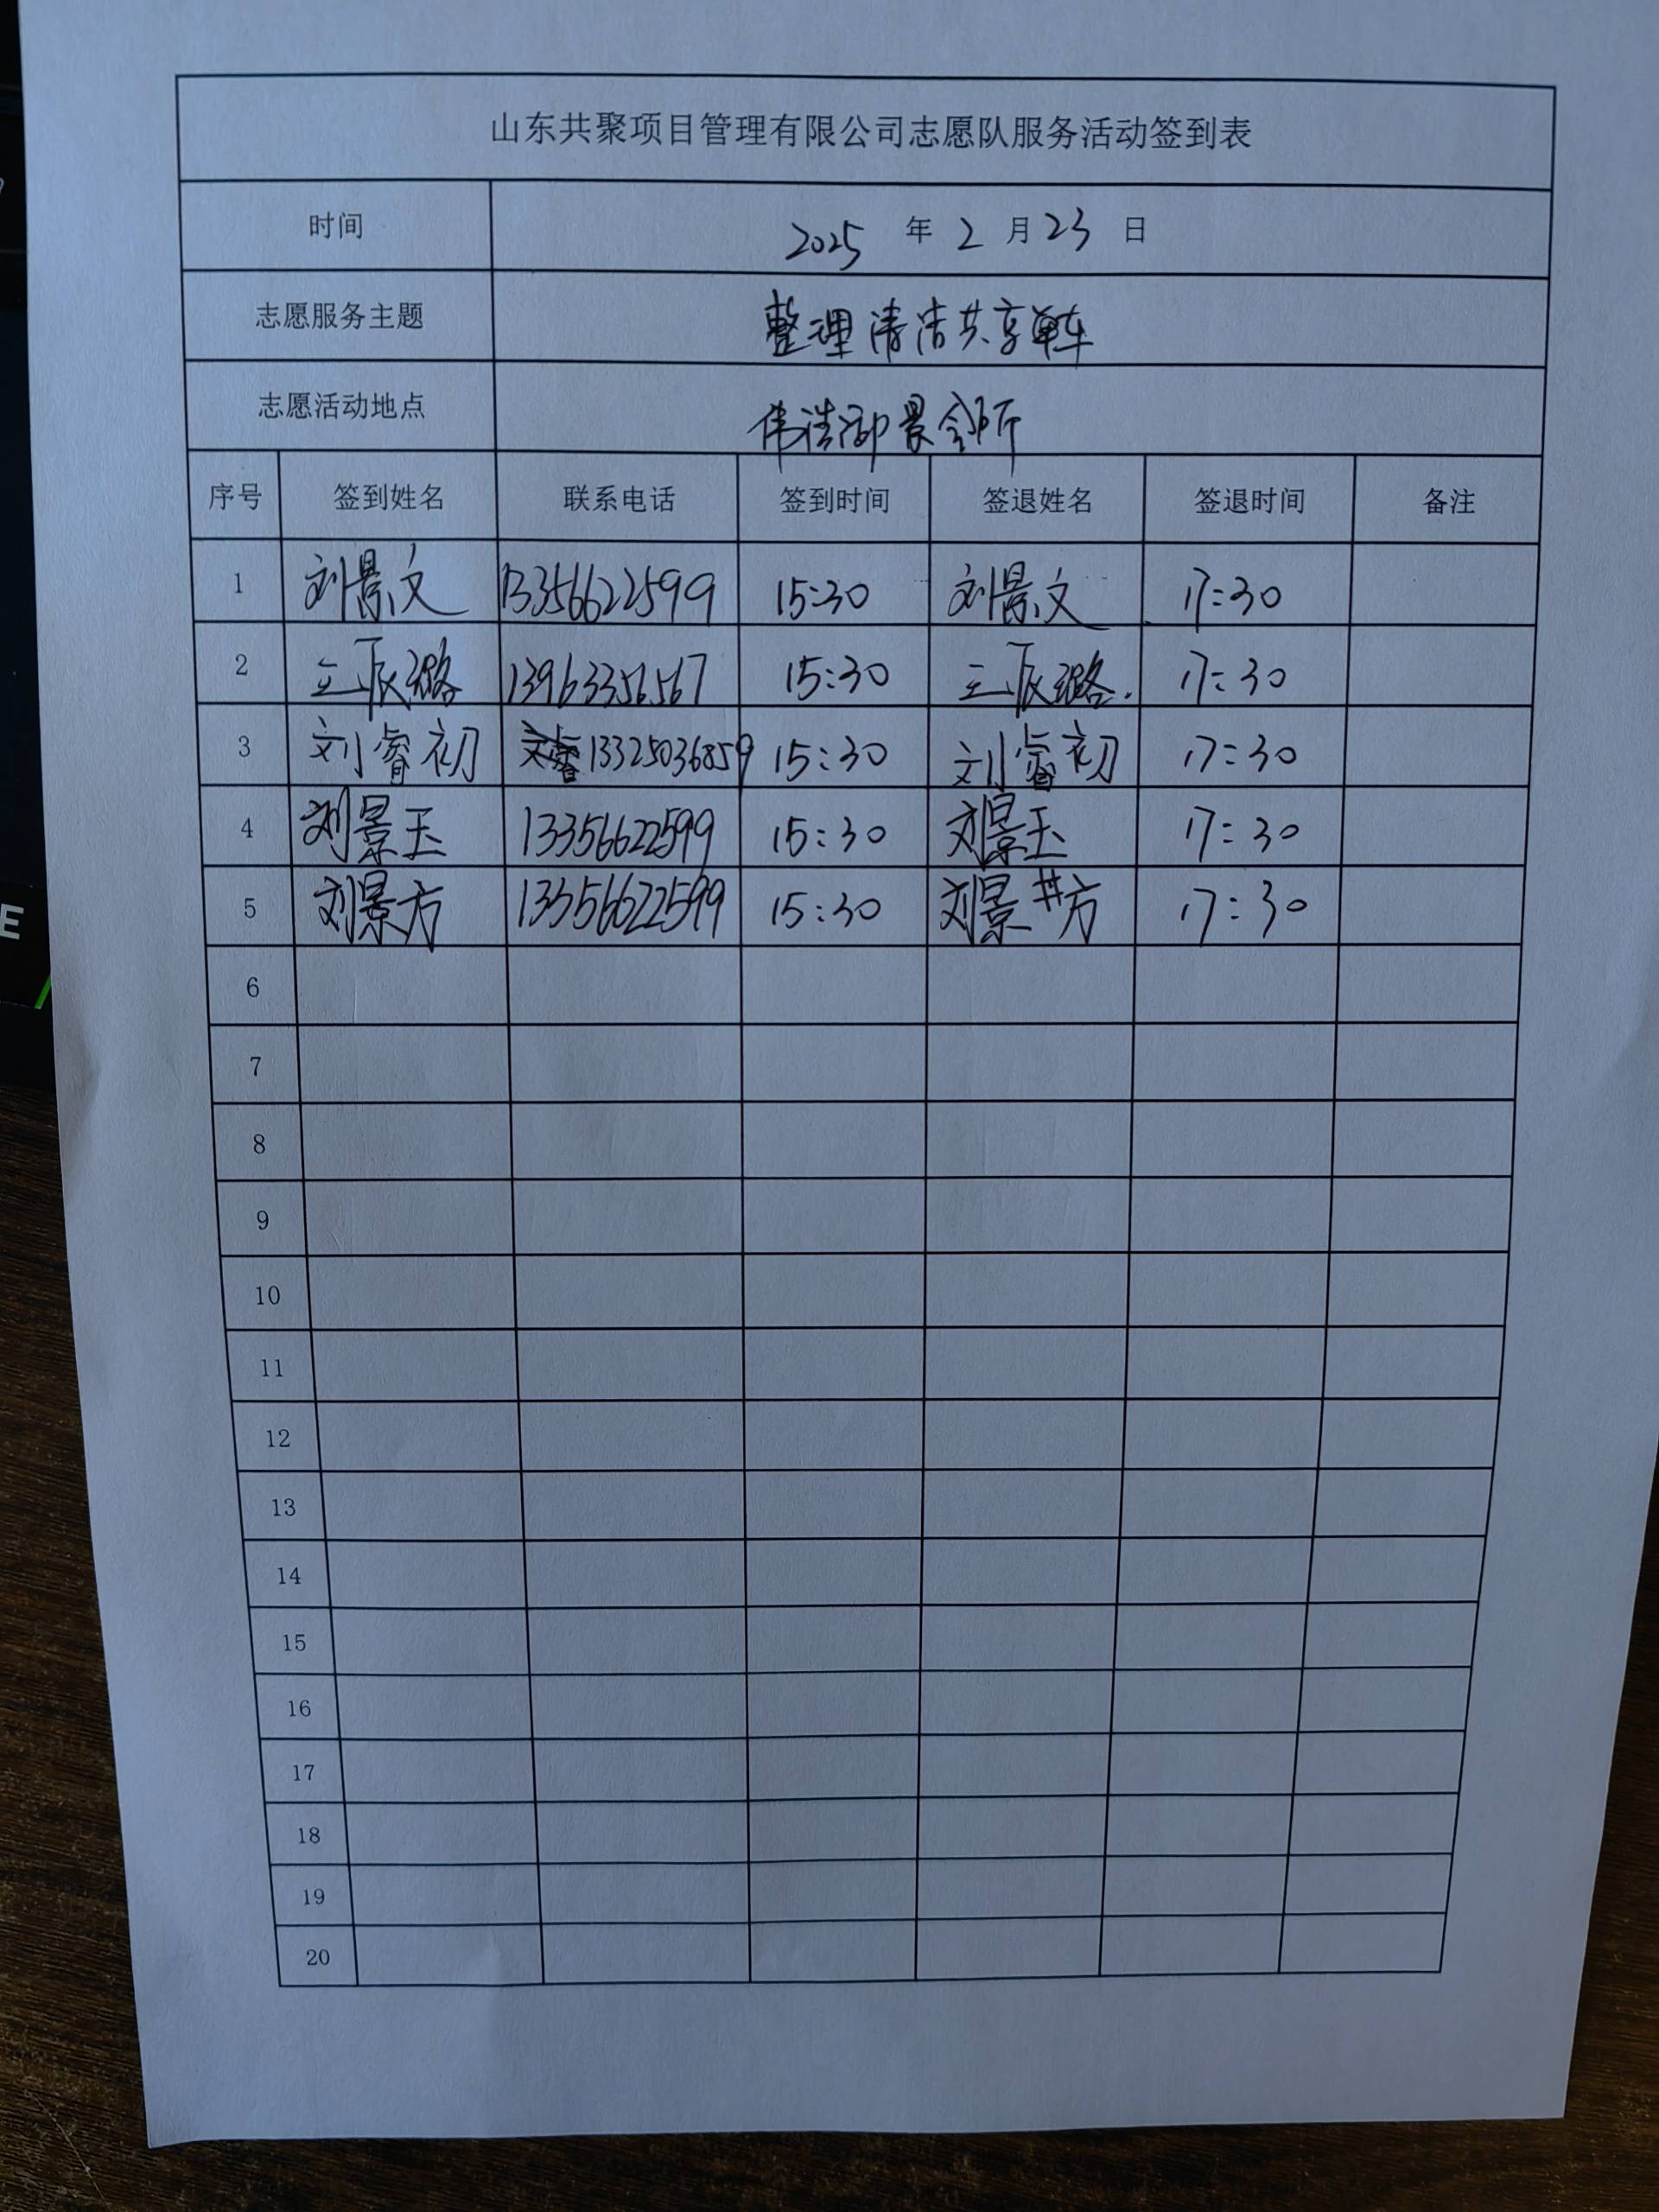 山东共聚项目管理有限公司志愿队服务活动签到表
时间 2025 年 2 月 23 日
志愿服务主题 整理清洁共享单车
志愿活动地点 伟浩御景会所
序号 签到姓名 联系电话 签到时间 签退姓名 签退时间 备注
1 刘景文 13356622599 15:30 刘景文 17:30
2 王辰璐 13963356567 15:30 王辰璐 17:30
3 刘睿初 13325036859 15:30 刘睿初 17:30
4 刘景玉 13356622599 15:30 刘景玉 17:30
5 刘景方 13356622599 15:30 刘景方 17:30
6
7
8
9
10
11
12
13
14
15
16
17
18
19
20
E